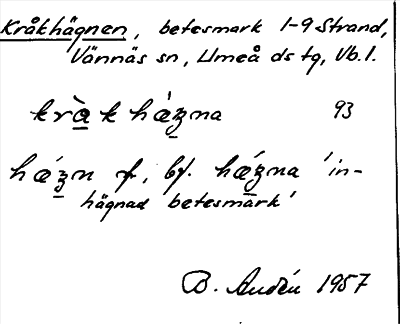 Kråkhägnen, betesmark 1-9 Strand,
Vännäs sn, Umeå ds tg, Vb. l.
kràk hǽʒna 93
hǽʒn f., bf. hǽʒna 'in-
hägnad betesmark'
B. Audén 1957